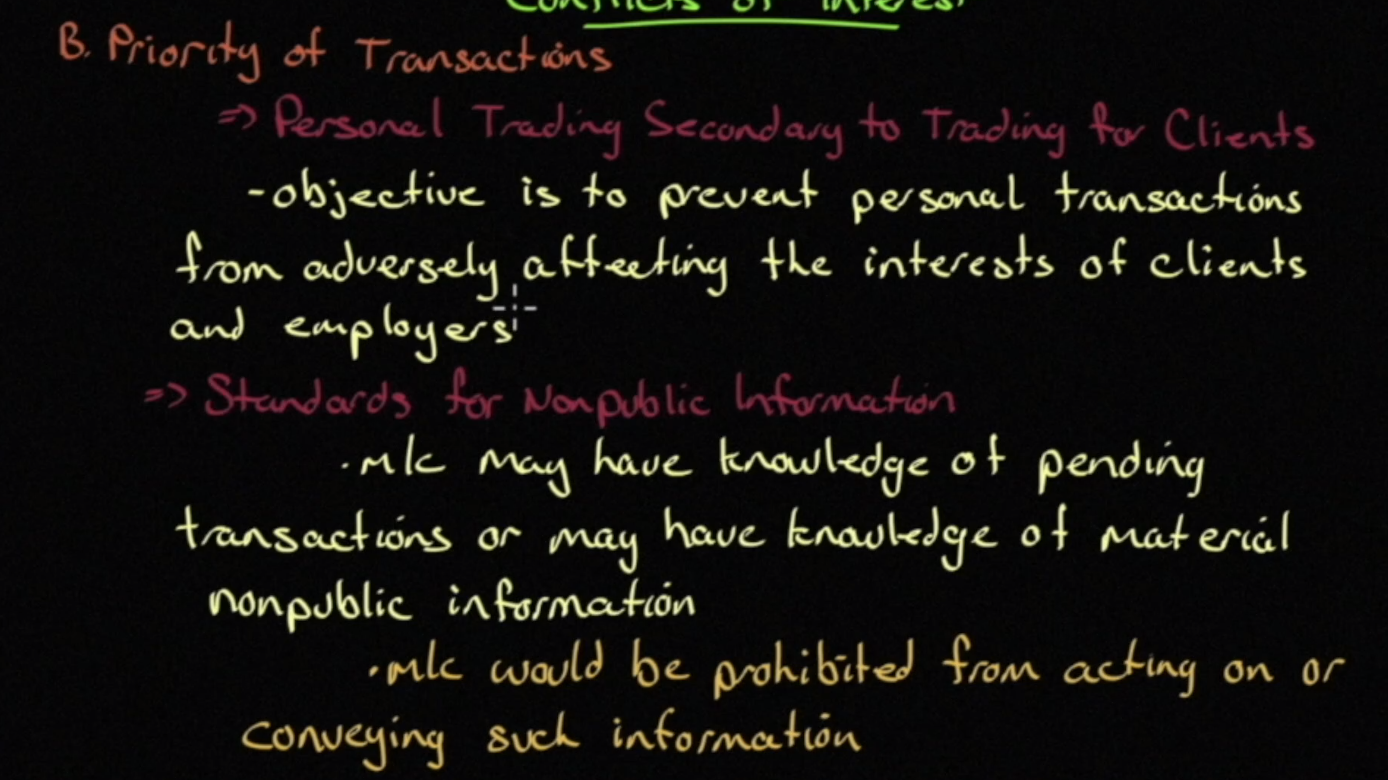 Conflicts of Interest
B. Priority of Transactions
=> Personal Trading Secondary to Trading for Clients
-objective is to prevent personal transactions
from adversely affecting the interests of clients
and employers
=> Standards for Nonpublic Information
.m/c may have knowledge of pending
transactions or may have knowledge of material
nonpublic information
.m/c would be prohibited from acting on or
conveying such information